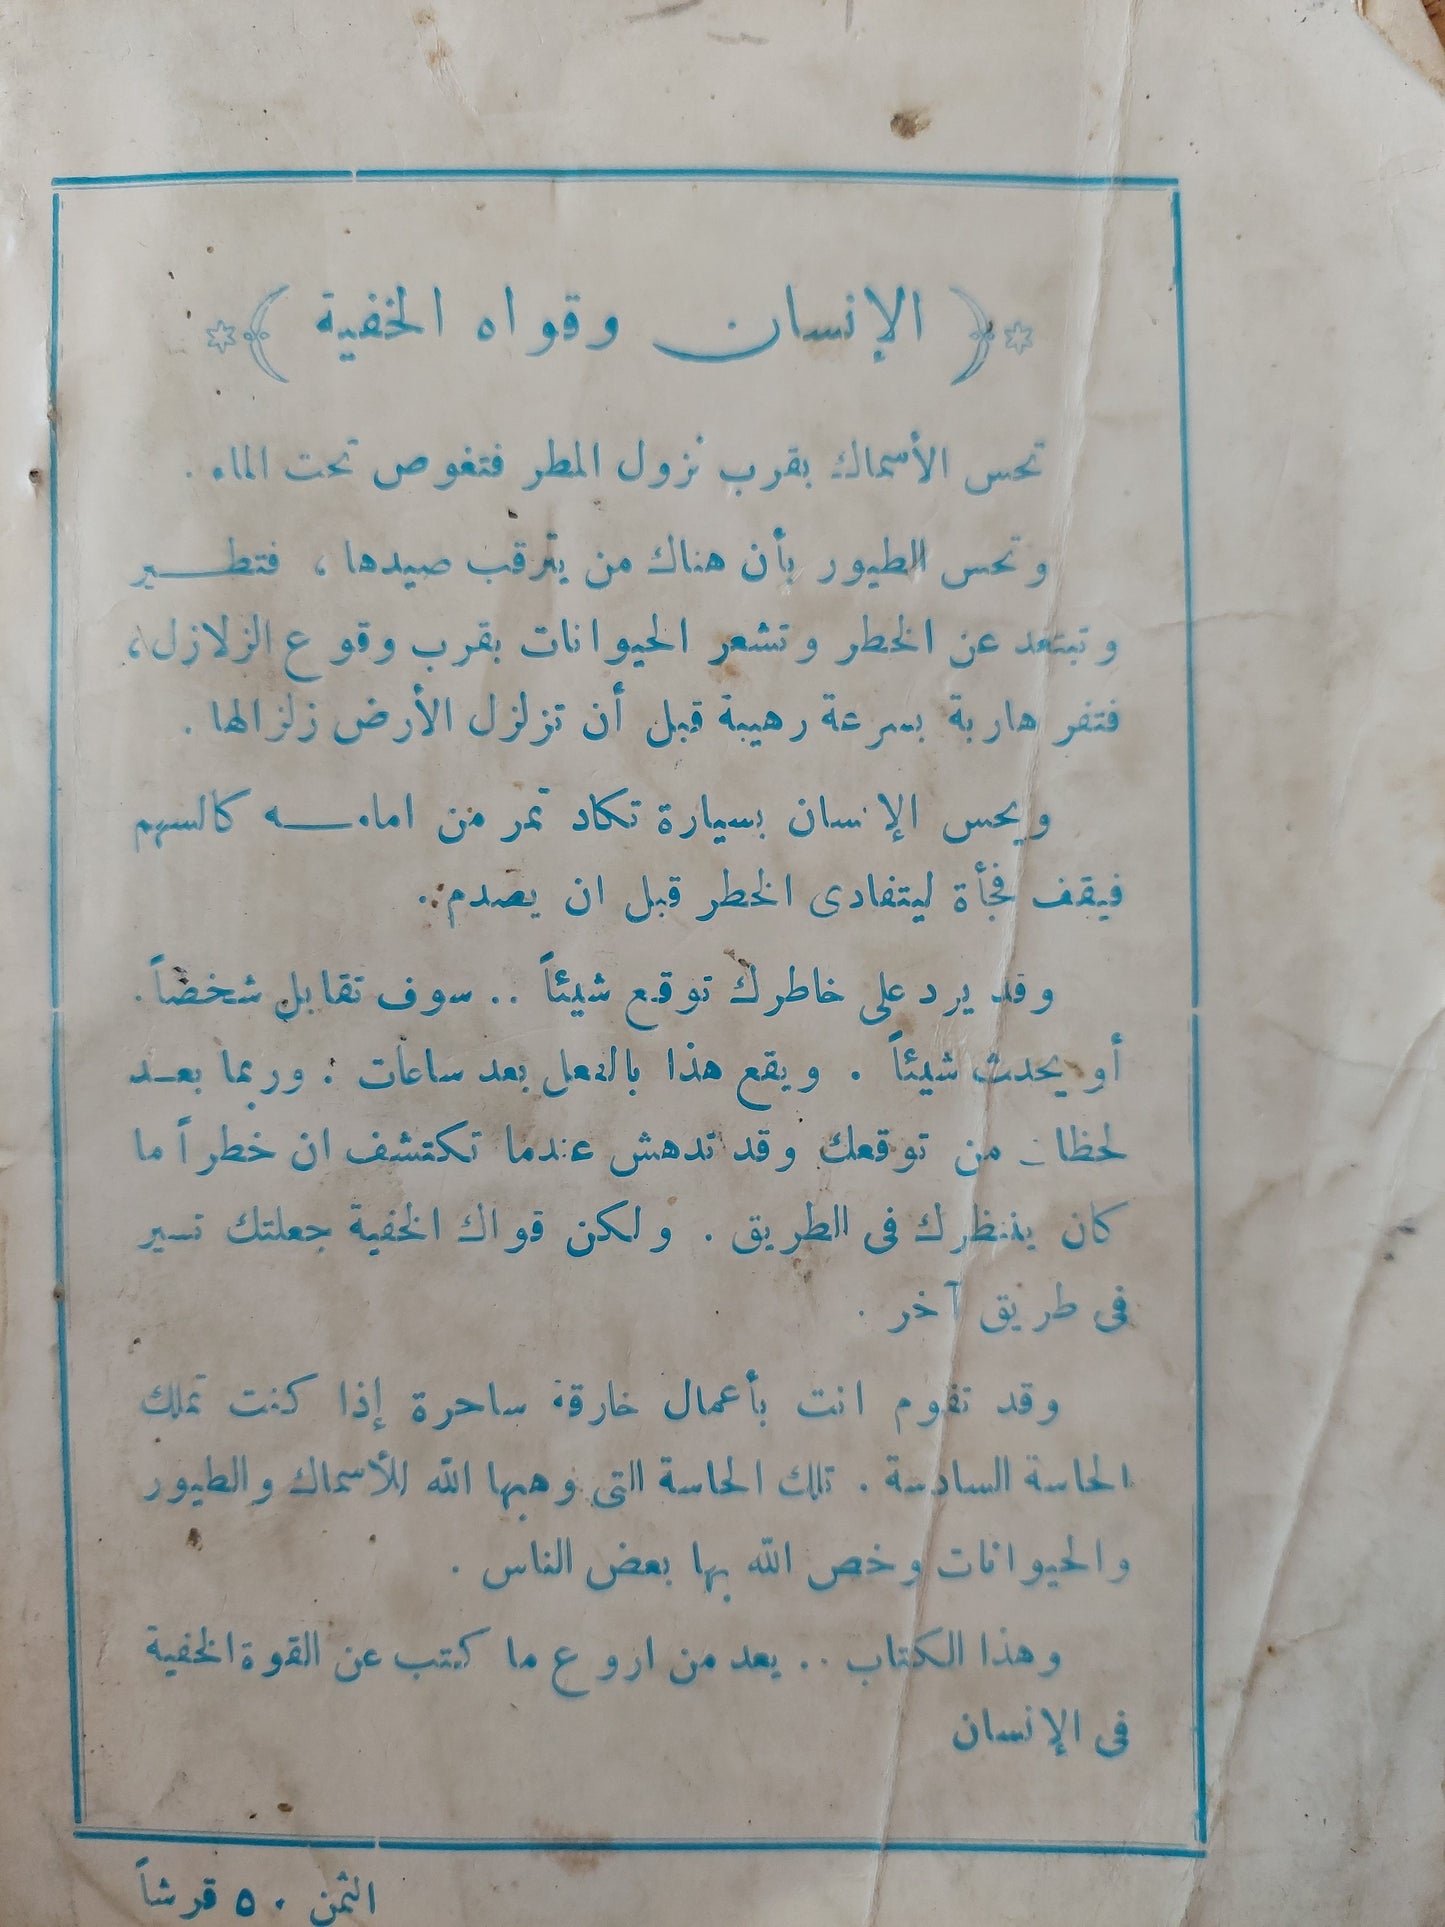 الإنسان وقواه الخفية
تحس الأسماك بقرب نزول المطر فتغوص تحت الماء .
وتحس الطيور بأن هناك من يترقب صيدها ، فتطير
وتبتعد عن الخطر وتشعر الحيوانات بقرب وقوع الزلازل ،
فتفر هاربة بسرعة رهيبة قبل أن تزلزل الأرض زلزالها .
ويحس الإنسان بسيارة تكاد تمر من امامه كالسهم
فيقف فجأة ليتفادى الخطر قبل ان يصدم ..
وقد يرد على خاطرك توقع شيئاً .. سوف تقابل شخصاً .
أو يحدث شيئاً . ويقع هذا بالفعل بعد ساعات : وربما بعد
لحظات من توقعك وقد تدهش عندما تكتشف ان خطراً ما
كان ينتظرك فى الطريق . ولكن قواك الخفية جعلتك تسير
فى طريق آخر .
وقد تقوم انت بأعمال خارقة ساحرة إذا كنت تملك
الحاسة السادسة . تلك الحاسة التى وهبها الله للأسماك والطيور
والحيوانات وخص الله بها بعض الناس .
وهذا الكتاب .. يعد من اروع ما كتب عن القوة الخفية
فى الإنسان
الثمن ٥٠ قرشاً